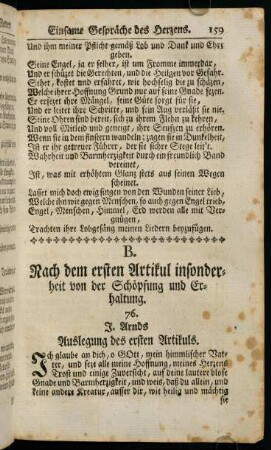 Einsame Gespräche des Herzens. 159
Und ihn meiner Pflicht gemäß Lob und Dank und Ehre
geben.
Seine Engel, ja er selber, ist um Fromme immerdar,
Und er schüzt die Gerechten, und die Heilgen vor Gefahr.
Sehet, kostet und erfahret, wie hochselig die zu schäzen,
Welche ihrer Hoffnung Grund nur auf seine Gnade sezen.
Er ersezet ihre Mängel, seine Güte sorgt für sie,
Und er leitet ihre Schritte, und sein Aug verläßt sie nie,
Seine Ohren sind bereit, sich zu ihrem Flehn zu kehren,
Und voll Mitleid und geneigt, ihre Seufzen zu erhören.
Wenn sie in dem finstern wandeln; zagen sie in Dunkelheit,
Ist er ihr getreuer Führer, der sie sichre Stege leit't.
Wahrheit und Barmherzigkeit durch ein freundlich Band
vereinet,
Ist, was mit erhöhtem Glanz stets aus seinen Wegen
scheinet.
Lasset mich doch ewig singen von den Wundern seiner Lieb,
Welche ihn wie gegen Menschen, so auch gegen Engel trieb,
Engel, Menschen, Himmel, Erd werden alle mit Ver-
gnügen,
Trachten ihre Lobgesäng meinen Liedern beyzufügen.
B.
Nach dem ersten Artikul insonder-
heit von der Schöpfung und Er-
haltung.
76.
J. Arnds
Auslegung des ersten Artikuls.
Ich glaube an dich, o GOtt, mein himmlischer Vat-
ter, und seze alle meine Hoffnung, meines Herzens
Trost und einige Zuversicht, auf deine lautere blose
Gnade und Barmherzigkeit, und weis, daß du allein, und
keine andere Kreatur, ausser dir, wie heilig und mächtig
sie